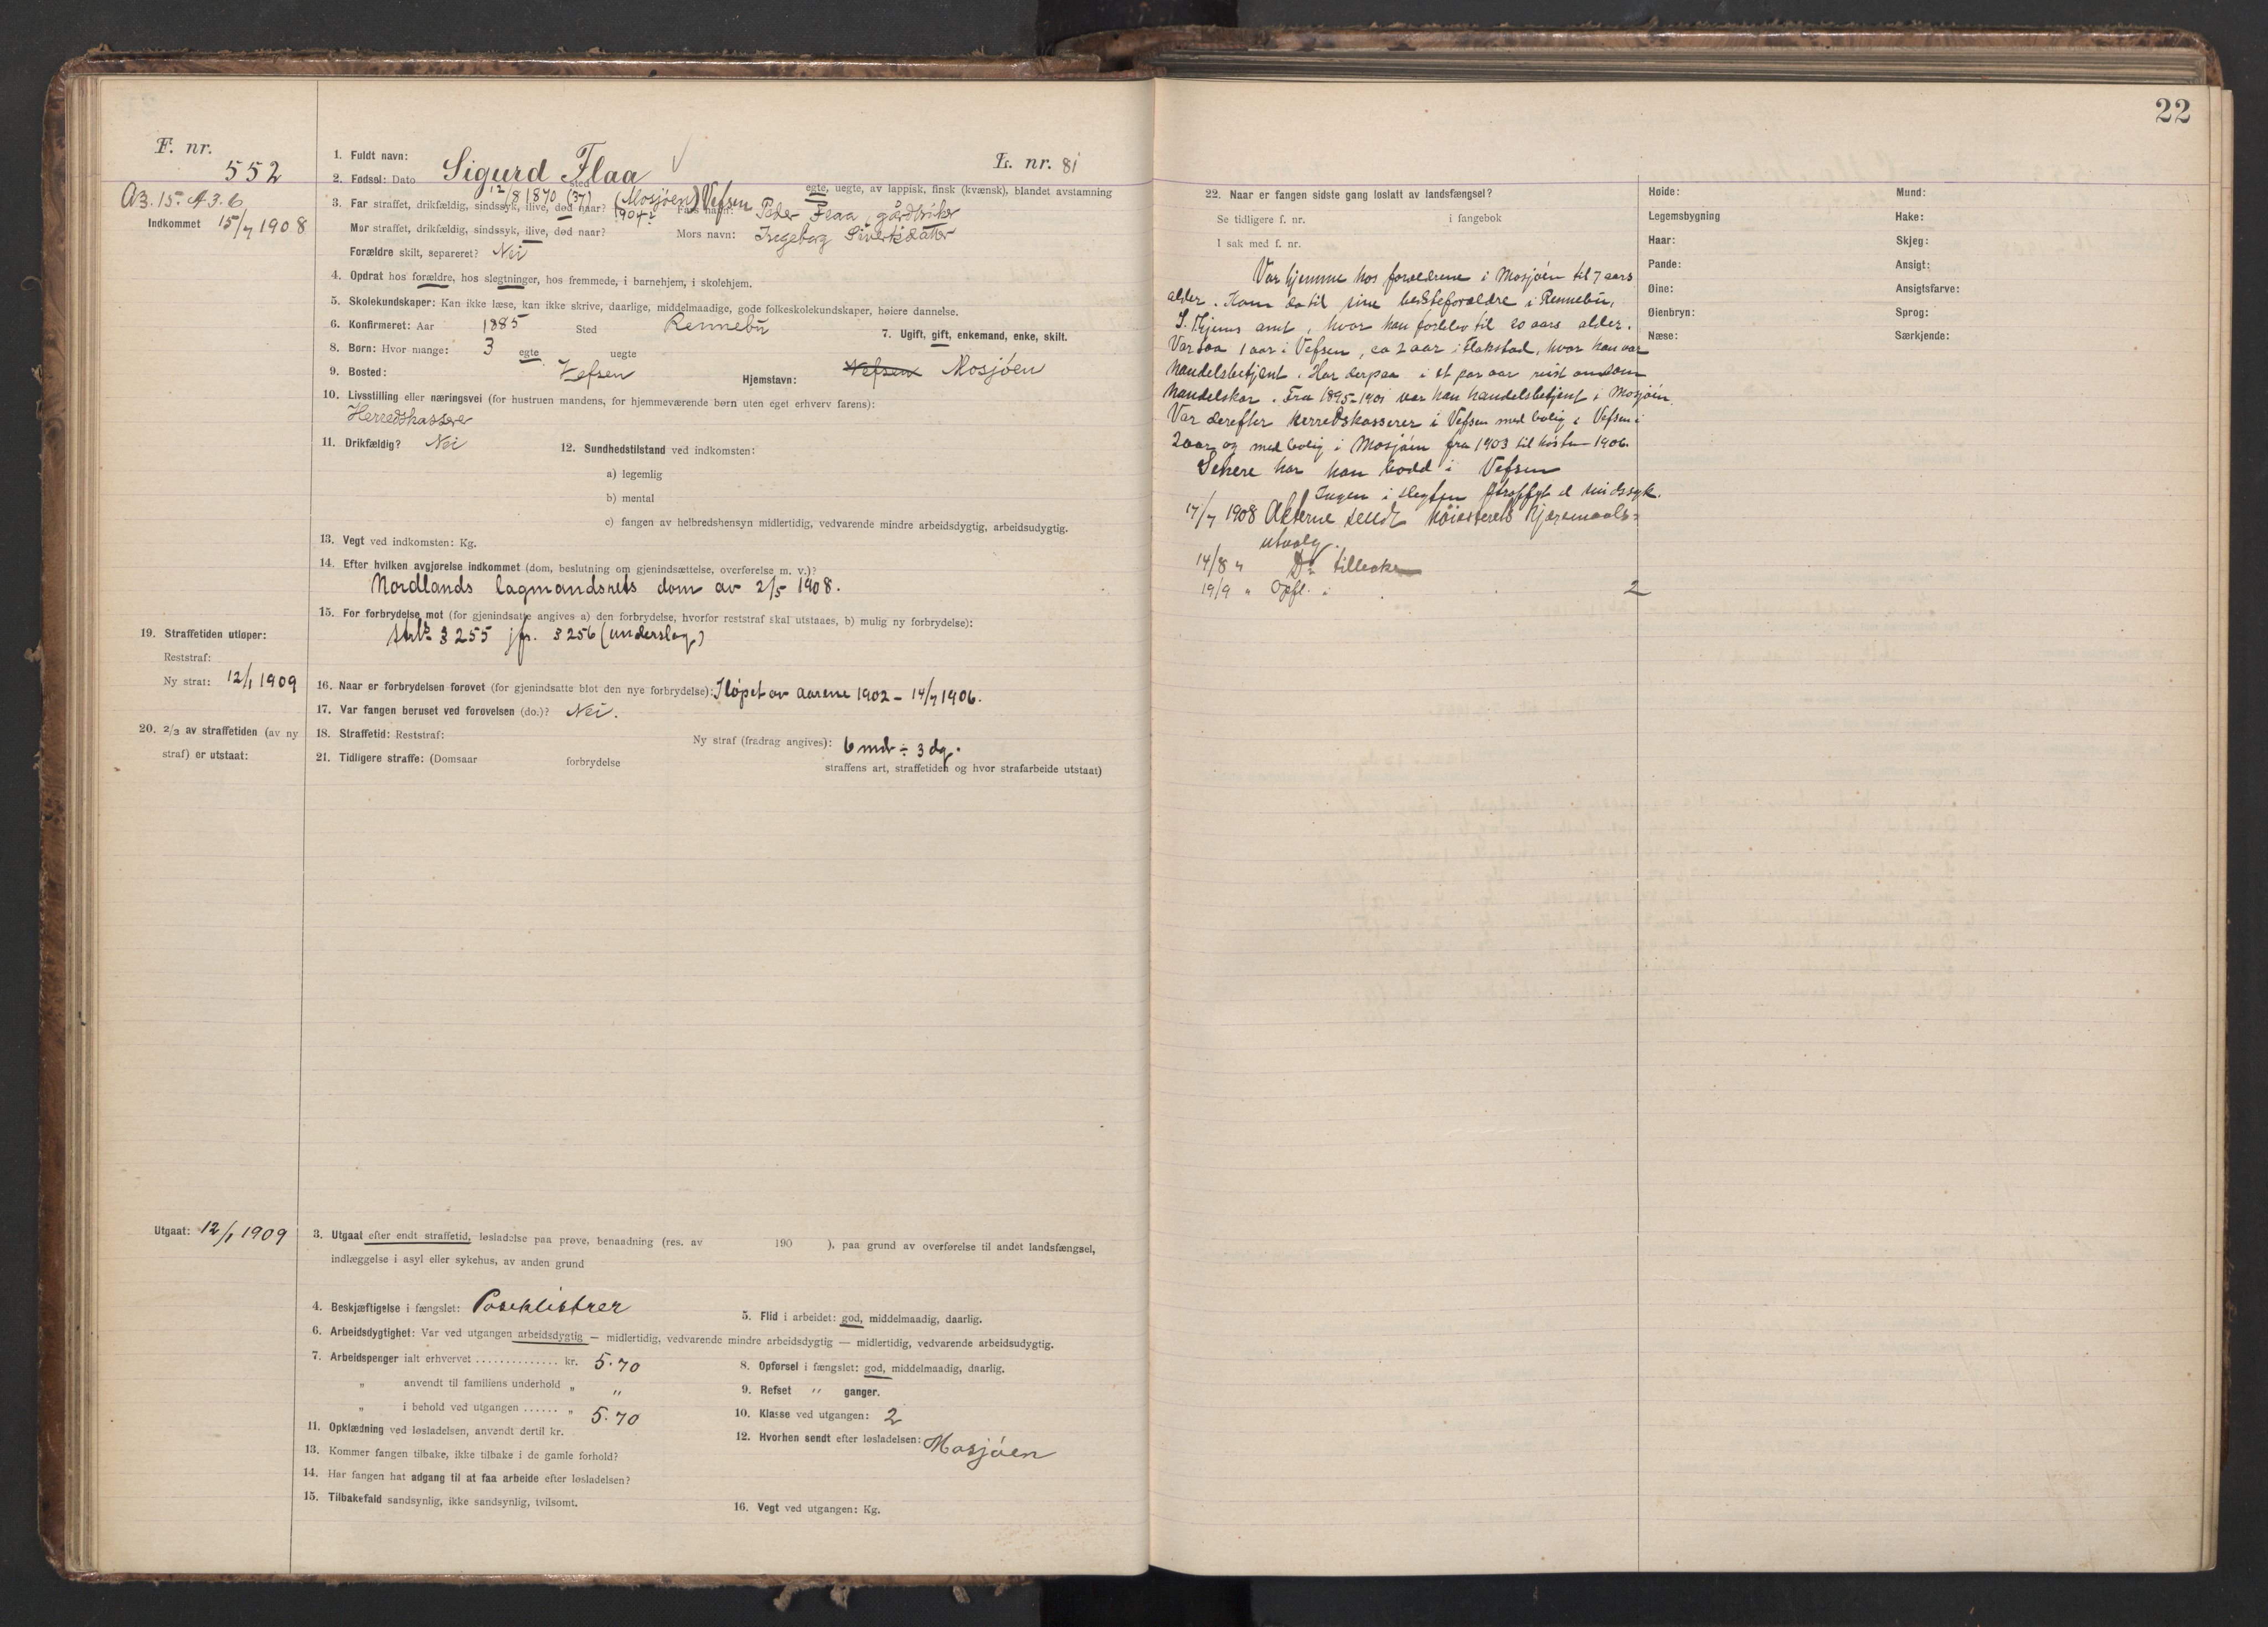 22
F. nr.
552
A3. 15. A3. 6
Indkommet 15/7 1908
1. Fuldt navn: Sigurd Flaa
L. nr. 81
2. Fødsel: Dato 12/8 1870 (37) sted (Mosjøen) Vefsen egte, uegte, av lappisk, finsk (kvænsk), blandet avstamning
3. Far straffet, drikfældig, sindssyk, ilive, død naar? 1904 Fars navn: Peder Flaa, gårdbruker
Mor straffet, drikfældig, sindssyk, ilive, død naar? Mors navn: Ingeborg Sivertsdatter
Forældre skilt, separeret? Nei
4. Opdrat hos forældre, hos slegtninger, hos fremmede, i barnehjem, i skolehjem.
5. Skolekundskaper: Kan ikke læse, kan ikke skrive, daarlige, middelmaadige, gode folkeskolekundskaper, høiere dannelse.
6. Konfirmeret: Aar 1885 Sted Rennebu
7. Ugift, gift, enkemand, enke, skilt.
8. Børn: Hvor mange: 3 egte uegte
9. Bosted: Vefsen Hjemstavn: Vefsen Mosjöen
10. Livsstilling eller næringsvei (for hustruen mandens, for hjemmeværende børn uten eget erhverv farens):
Herredskasserer
11. Drikfældig? Nei
12. Sundhedstilstand ved indkomsten:
a) legemlig
b) mental
c) fangen av helbredshensyn midlertidig, vedvarende mindre arbeidsdygtig, arbeidsudygtig.
13. Vegt ved indkomsten: Kg.
14. Efter hvilken avgjørelse indkommet (dom, beslutning om gjenindsættelse, overførelse m. v.)?
Nordlands lagmandsrets dom av 2/5 1908.
15. For forbrydelse mot (for gjenindsatte angives a) den forbrydelse, hvorfor reststraf skal utstaaes, b) mulig ny forbrydelse):
strl. § 255 jfr. § 256 (underslag)
19. Straffetiden utløper:
Reststraf:
Ny straf: 12/1 1909
16. Naar er forbrydelsen forøvet (for gjenindsatte blot den nye forbrydelse): I löpet av aarene 1902 - 14/7 1906.
17. Var fangen beruset ved forøvelsen (do.)? Nei.
20. 2/3 av straffetiden (av ny
straf) er utstaat:
18. Straffetid: Reststraf: Ny straf (fradrag angives): 6 mdr ÷ 3 dg.
21. Tidligere straffe: (Domsaar forbrydelse straffens art, straffetiden og hvor strafarbeide utstaat)
Utgaat: 12/1 1909
3. Utgaat efter endt straffetid, løsladelse paa prøve, benaadning (res. av 190 ), paa grund av overførelse til andet landsfængsel,
indlæggelse i asyl eller sykehus, av anden grund
4. Beskjæftigelse i fængslet: Poseklistrer
5. Flid i arbeidet: god, middelmaadig, daarlig.
6. Arbeidsdygtighet: Var ved utgangen arbeidsdygtig — midlertidig, vedvarende mindre arbeidsdygtig — midlertidig, vedvarende arbeidsudygtig.
7. Arbeidspenger ialt erhvervet .............. kr. 5.70
8. Opførsel i fængslet: god, middelmaadig, daarlig.
" anvendt til familiens underhold " "
9. Refset " ganger.
" i behold ved utgangen ...... " 5.70
10. Klasse ved utgangen: 2
11. Opklædning ved løsladelsen, anvendt dertil kr.
12. Hvorhen sendt efter løsladelsen: Mosjöen
13. Kommer fangen tilbake, ikke tilbake i de gamle forhold?
14. Har fangen hat adgang til at faa arbeide efter løsladelsen?
15. Tilbakefald sandsynlig, ikke sandsynlig, tvilsomt.
16. Vegt ved utgangen: Kg.
22. Naar er fangen sidste gang løslatt av landsfængsel?
Se tidligere f. nr. i fangebok
I sak med f. nr.
Var hjemme hos forældrene i Mosjöen til 7 aars
alder. Kom da til sine bedsteforældre i Rennebu,
S. Thjems amt, hvor han forblev til 20 aars alder.
Var saa 1 aar i Vefsen, ca 2 aar i Flakstad, hvor han var
handelsbetjent. Har derpaa i et par aar reist om som
handelskar. Fra 1895-1901 var han handelsbetjent i Mosjöen.
Var derefter Herredskasserer i Vefsen med bolig i Vefsen i
2 aar og med bolig i Mosjöen fra 1903 til hösten 1906.
Senere har han bodd i Vefsen
Ingen i slegten straffet el sindssyk.
17/7 1908 Akterne sendt Höiesterets Kjæremaals=
utvalg.
14/8 " Do tilbake
19/9 " Opfl. 2
Høide:
Legemsbygning
Haar:
Pande:
Øine:
Øienbryn:
Næse:
Mund:
Hake:
Skjeg:
Ansigt:
Ansigtsfarve:
Sprog:
Særkjende: